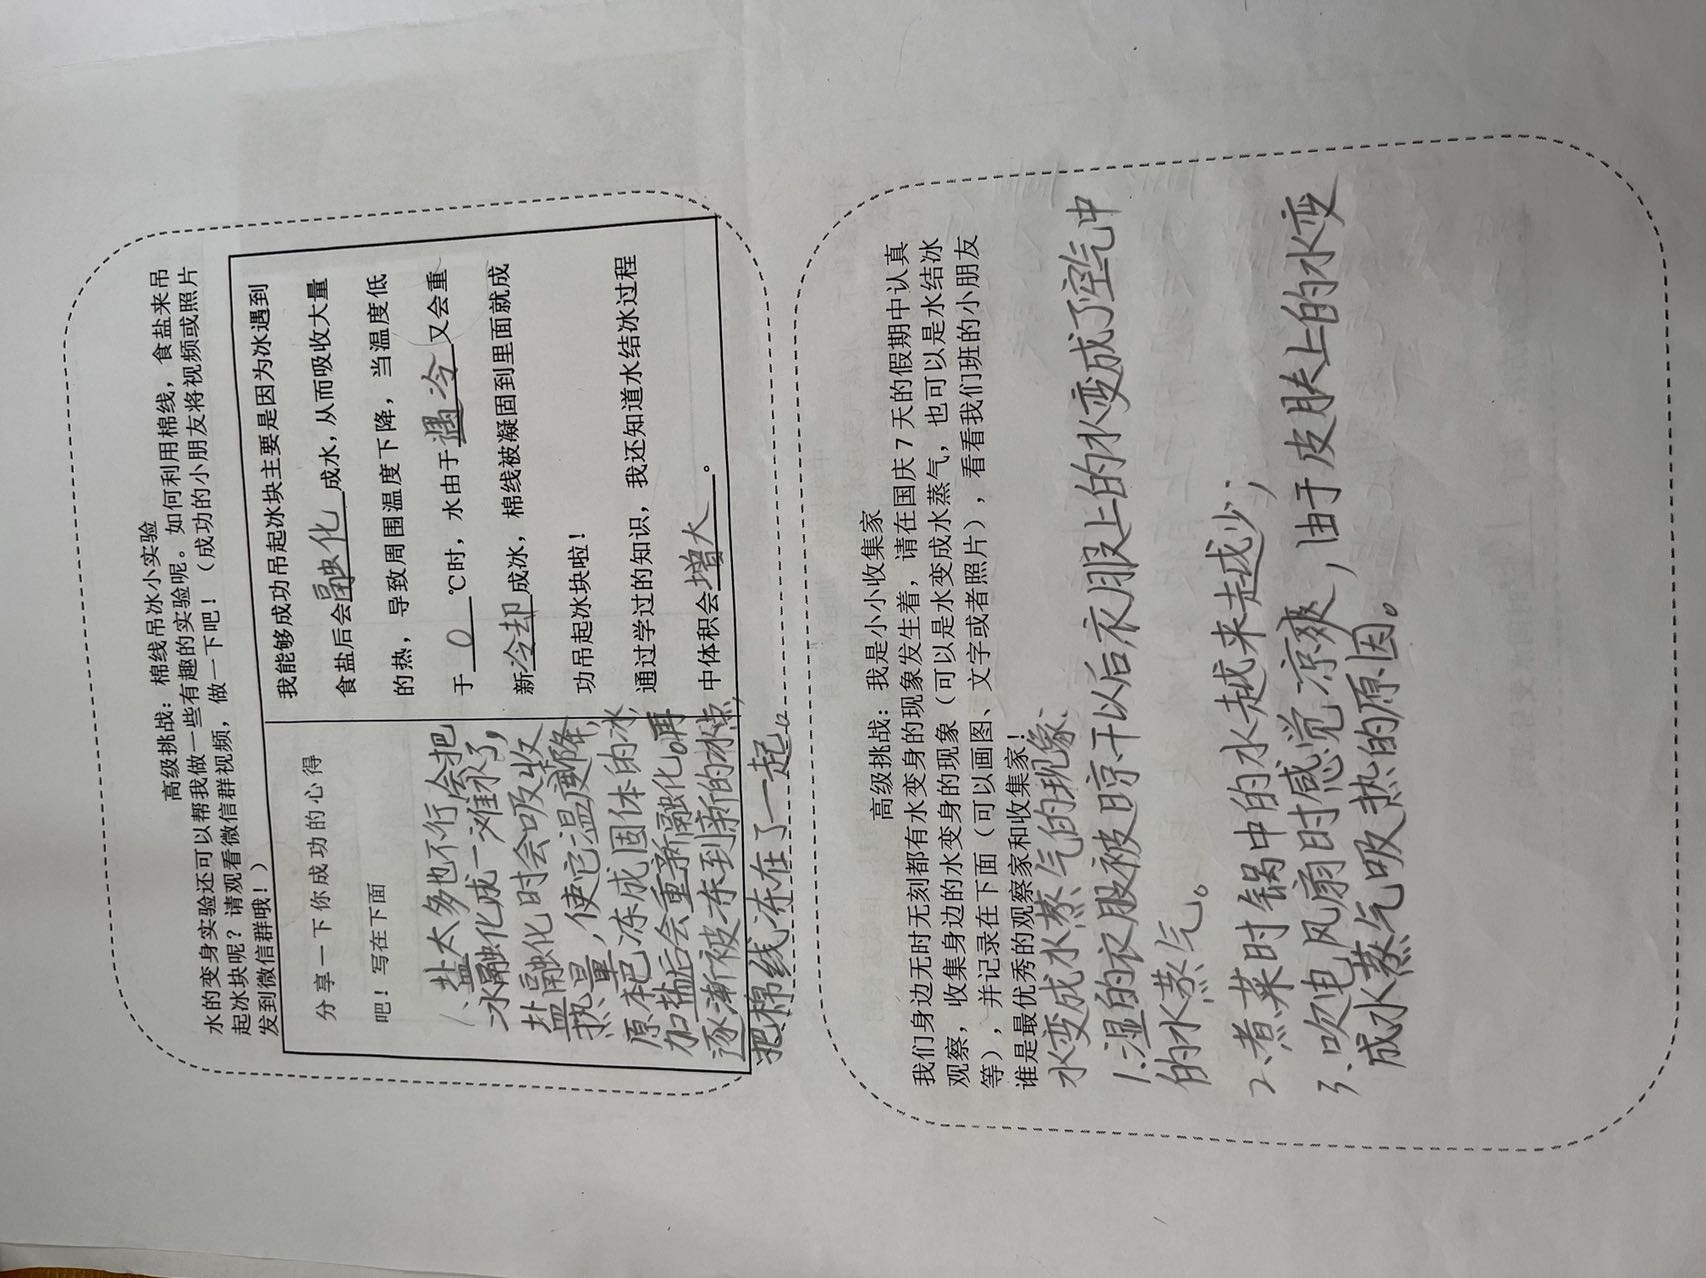 高级挑战：棉线吊冰小实验
水的变身实验还可以帮我做一些有趣的实验呢。如何利用棉线，食盐来吊
起冰块呢？请观看微信群视频，做一下吧！（成功的小朋友将视频或照片
发到微信群哦！）
分享一下你成功的心得
吧！写在下面
1、盐太多也不行会把
冰融化成一滩水了，
盐融化时会吸收
热量，使它温度降，
原本把冻成固体的冰，
加盐后会重新融化。再
逐渐被冻到新的冰点，
把棉线冻在了一起。
我能够成功吊起冰块主要是因为冰遇到
食盐后会融化成水，从而吸收大量
的热，导致周围温度下降，当温度低
于0℃时，水由于遇冷又会重
新冷却成冰，棉线被凝固到里面就成
功吊起冰块啦！
通过学过的知识，我还知道水结冰过程
中体积会增大。
高级挑战：我是小小收集家
我们身边无时无刻都有水变身的现象发生着，请在国庆7天的假期中认真
观察，收集身边的水变身的现象（可以是水变成水蒸气，也可以是水结冰
等），并记录在下面（可以画图、文字或者照片），看看我们班的小朋友
谁是最优秀的观察家和收集家！
水变成水蒸气的现象：
1、湿的衣服被晾干以后衣服上的水变成了空气中
的水蒸气。
2、煮菜时锅中的水越来越少；
3、吹电风扇时感觉凉爽，由于皮肤上的水变
成水蒸气吸热的原因。